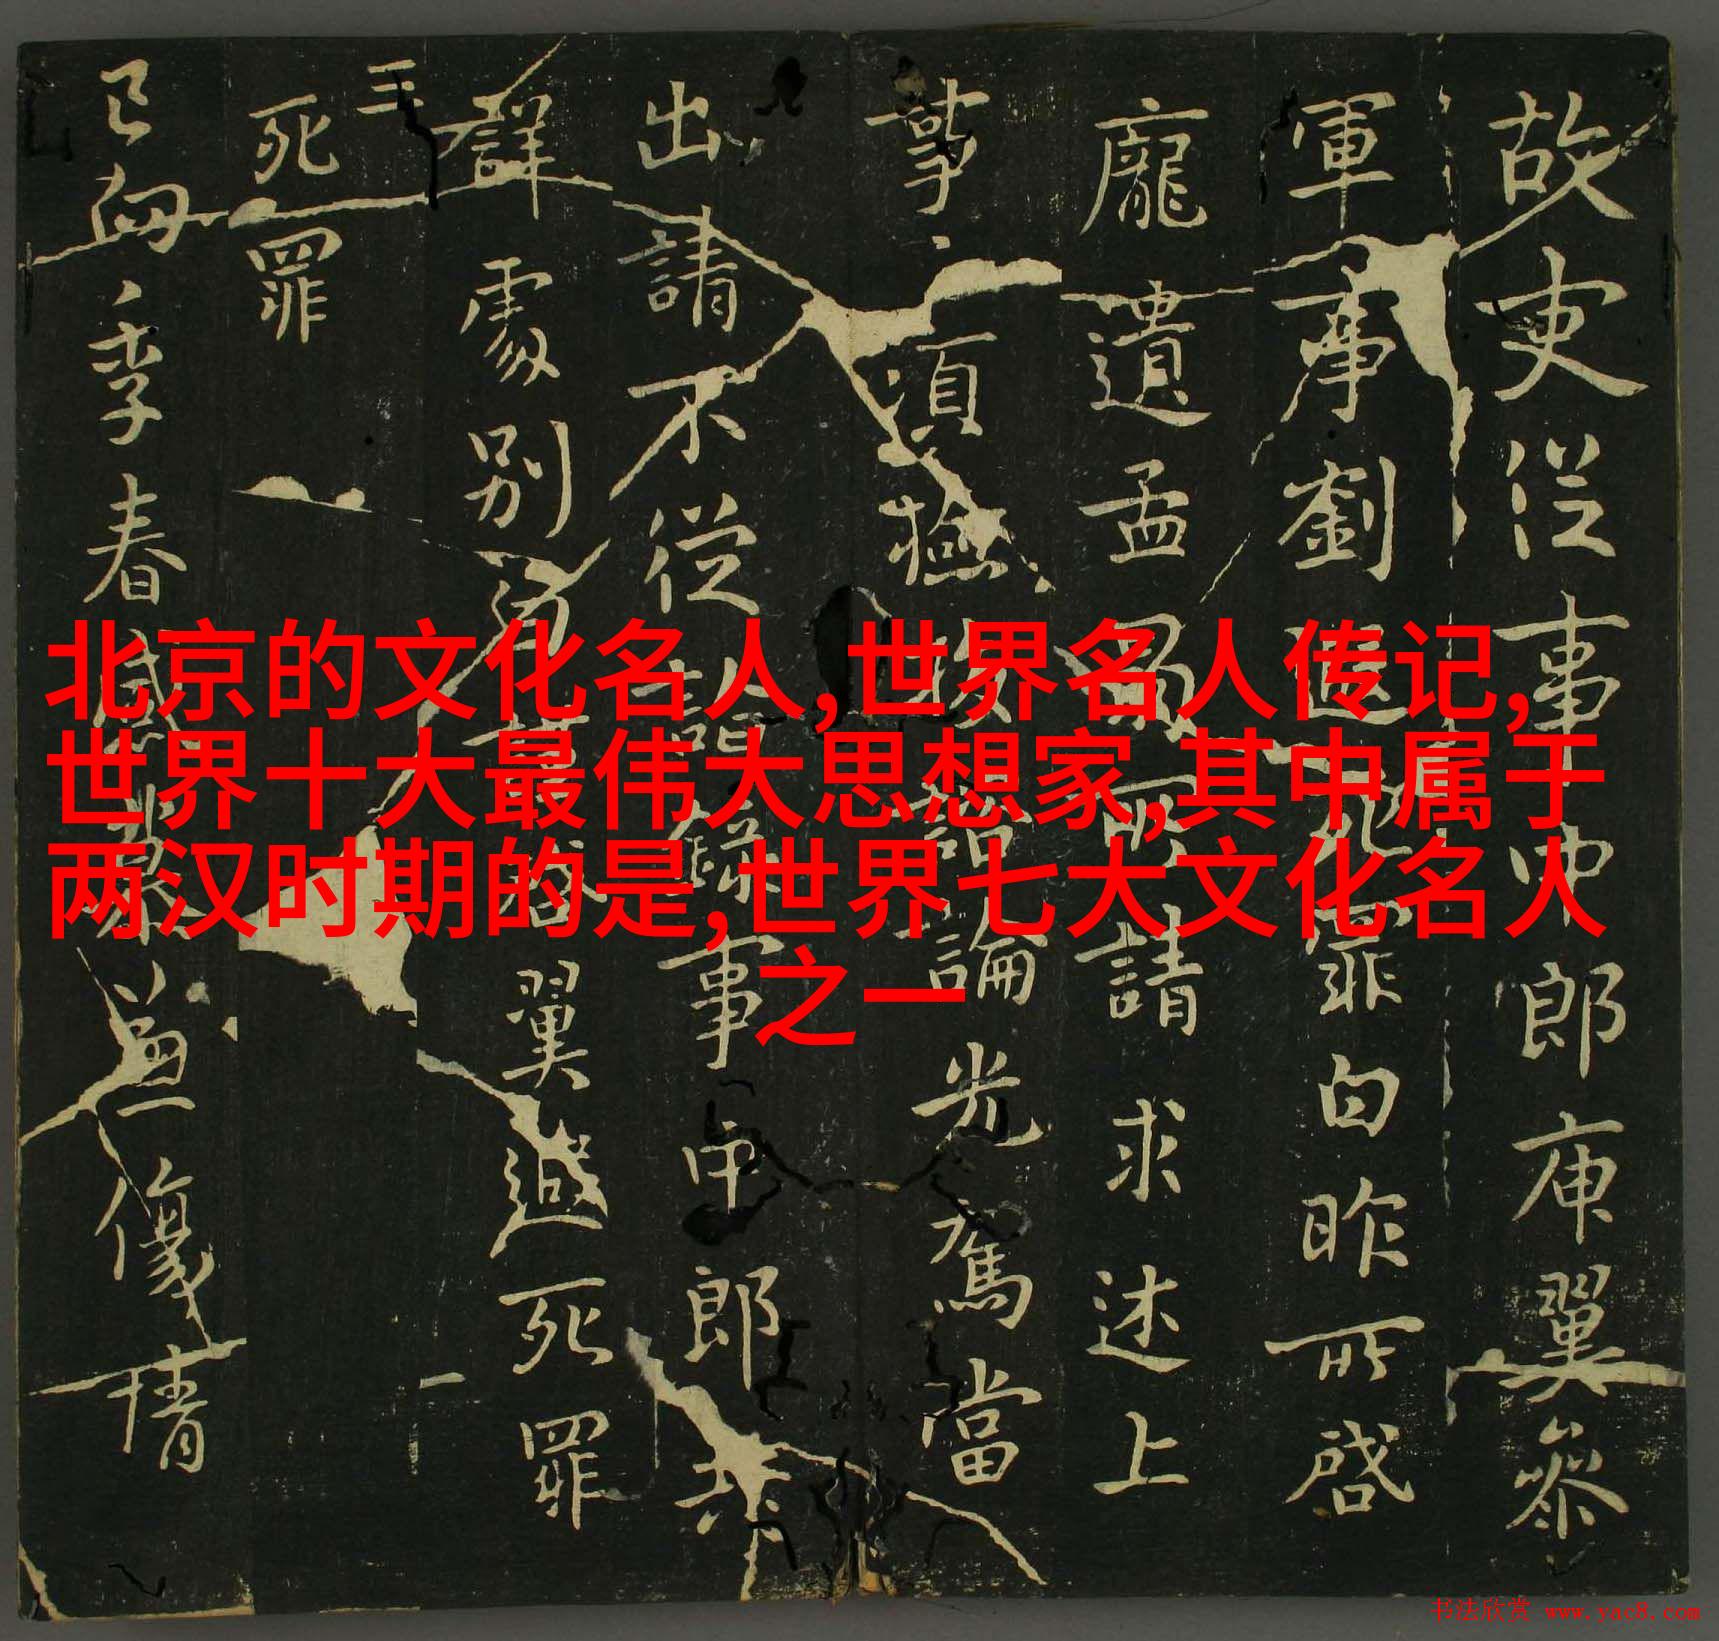 北京的文化名人,世界名人传记,
世界十大最伟大思想家,其中属于
两汉时期的是,世界七大文化名人
之一
故吏從事中郎庾翼參
軍事劉遐死罪白昨所啓
龐遺孟所請求述上
事須撿論光駕當
出請不從事中郎共
詳處別翼遐死罪
死罪
季春
书法欣赏 www.yac8.com